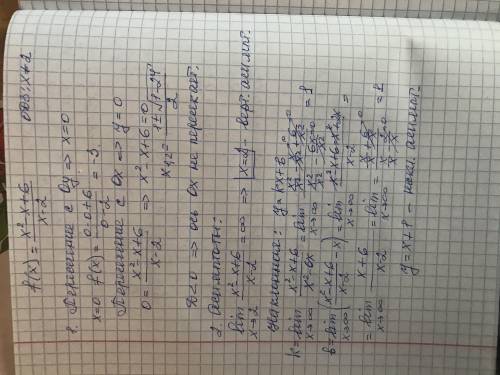 f(x) = (x² - x + 6)/(x - 2) ООФ: x ≠ 2
1. Пересечение с Oy => x = 0
x = 0 f(x) = (0 - 0 + 6)/(0 - 2) = -3
Пересечение с Ox => y = 0
0 = (x² - x + 6)/(x - 2) => x² - x + 6 = 0
x₁,₂ = (1 ± √(1 - 24))/2
D < 0 => ось Ox не пересекает.
2. Асимптоты:
lim x→2 (x² - x + 6)/(x - 2) = ∞ => x = 2 - верт. асимпт.
Наклонная: y = kx + b
k = lim x→∞ (x² - x + 6)/(x² - 2x) = lim x→∞ (x²/x² - x/x² + 6/x²)/(x²/x² - 2x/x²) = 1
b = lim x→∞ ((x² - x + 6)/(x - 2) - x) = lim x→∞ (x² - x + 6 - x² + 2x)/(x - 2) =
= lim x→∞ (x + 6)/(x - 2) = lim x→∞ (x/x + 6/x)/(x/x - 2/x) = 1
y = x + 1 - накл. асимпт.